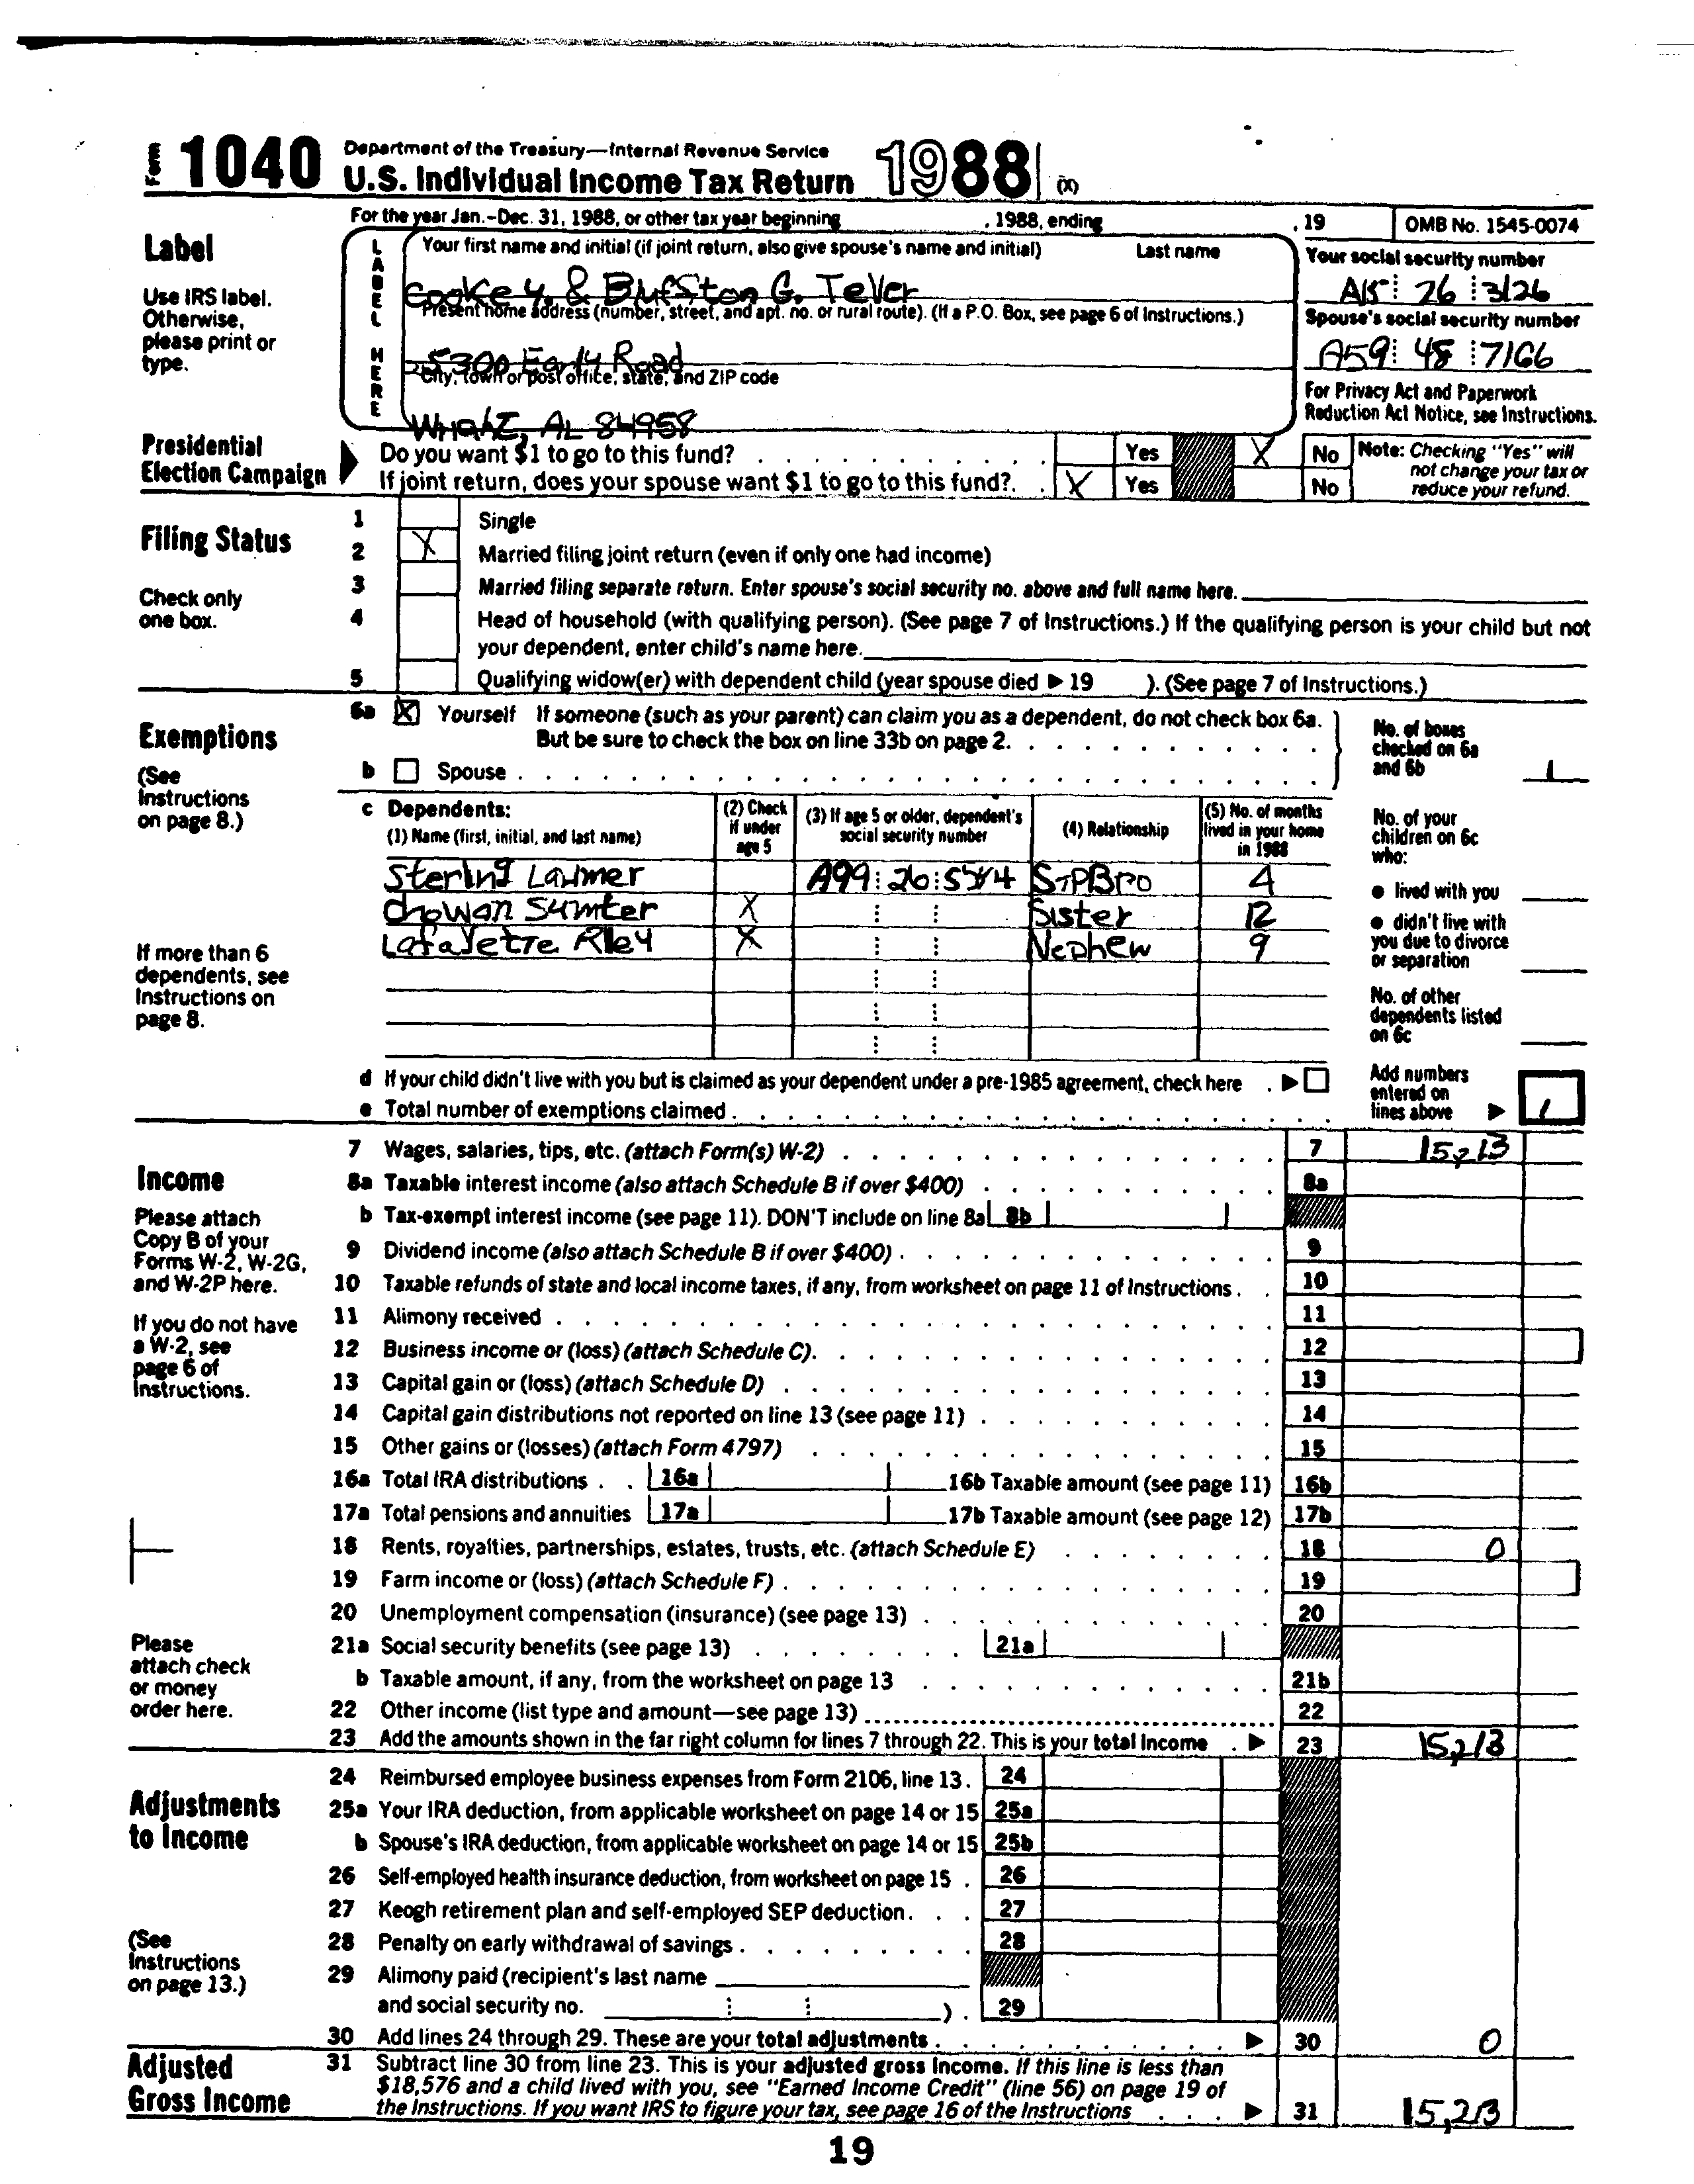 Form 1040 Department of the Treasury—Internal Revenue Service
U.S. Individual Income Tax Return 1988 (X)
For the year Jan.-Dec. 31, 1988, or other tax year beginning , 1988, ending , 19 OMB No. 1545-0074
Label
Use IRS label.
Otherwise,
please print or
type.
LABEL HERE
Your first name and initial (if joint return, also give spouse's name and initial) Last name
Cooke Y. & Blufston G. Tever
Present home address (number, street, and apt. no. or rural route). (If a P.O. Box, see page 6 of Instructions.)
5300 Early Road
City, town or post office, state, and ZIP code
Wright, AL 84958
Your social security number
A15 26 3126
Spouse's social security number
A59 48 7166
For Privacy Act and Paperwork
Reduction Act Notice, see Instructions.
Presidential
Election Campaign
Do you want $1 to go to this fund? Yes X No
If joint return, does your spouse want $1 to go to this fund? X Yes No
Note: Checking "Yes" will
not change your tax or
reduce your refund.
Filing Status
Check only
one box.
1 Single
2 X Married filing joint return (even if only one had income)
3 Married filing separate return. Enter spouse's social security no. above and full name here.
4 Head of household (with qualifying person). (See page 7 of Instructions.) If the qualifying person is your child but not
your dependent, enter child's name here.
5 Qualifying widow(er) with dependent child (year spouse died ▶ 19 ). (See page 7 of Instructions.)
Exemptions
(See
Instructions
on page 8.)
If more than 6
dependents, see
Instructions on
page 8.
6a X Yourself If someone (such as your parent) can claim you as a dependent, do not check box 6a.
But be sure to check the box on line 33b on page 2.
b Spouse
No. of boxes
checked on 6a
and 6b 1
c Dependents:
(1) Name (first, initial, and last name)
(2) Check
if under
age 5
(3) If age 5 or older, dependent's
social security number
(4) Relationship
(5) No. of months
lived in your home
in 1988
Sterling Larimer A99 26 5544 StPBro 4
Chowan Sumter X Sister 12
Lafayette Riley X Nephew 9
No. of your
children on 6c
who:
● lived with you
● didn't live with
you due to divorce
or separation
No. of other
dependents listed
on 6c
d If your child didn't live with you but is claimed as your dependent under a pre-1985 agreement, check here ▶
e Total number of exemptions claimed
Add numbers
entered on
lines above ▶ 1
Income
Please attach
Copy B of your
Forms W-2, W-2G,
and W-2P here.
If you do not have
a W-2, see
page 6 of
Instructions.
Please
attach check
or money
order here.
7 Wages, salaries, tips, etc. (attach Form(s) W-2) 7 15,213
8a Taxable interest income (also attach Schedule B if over $400) 8a
b Tax-exempt interest income (see page 11). DON'T include on line 8a 8b
9 Dividend income (also attach Schedule B if over $400) 9
10 Taxable refunds of state and local income taxes, if any, from worksheet on page 11 of Instructions 10
11 Alimony received 11
12 Business income or (loss) (attach Schedule C) 12
13 Capital gain or (loss) (attach Schedule D) 13
14 Capital gain distributions not reported on line 13 (see page 11) 14
15 Other gains or (losses) (attach Form 4797) 15
16a Total IRA distributions 16a 16b Taxable amount (see page 11) 16b
17a Total pensions and annuities 17a 17b Taxable amount (see page 12) 17b
18 Rents, royalties, partnerships, estates, trusts, etc. (attach Schedule E) 18 0
19 Farm income or (loss) (attach Schedule F) 19
20 Unemployment compensation (insurance) (see page 13) 20
21a Social security benefits (see page 13) 21a
b Taxable amount, if any, from the worksheet on page 13 21b
22 Other income (list type and amount—see page 13) 22
23 Add the amounts shown in the far right column for lines 7 through 22. This is your total income ▶ 23 15,213
Adjustments
to Income
(See
Instructions
on page 13.)
24 Reimbursed employee business expenses from Form 2106, line 13 24
25a Your IRA deduction, from applicable worksheet on page 14 or 15 25a
b Spouse's IRA deduction, from applicable worksheet on page 14 or 15 25b
26 Self-employed health insurance deduction, from worksheet on page 15 26
27 Keogh retirement plan and self-employed SEP deduction 27
28 Penalty on early withdrawal of savings 28
29 Alimony paid (recipient's last name
and social security no. ) 29
30 Add lines 24 through 29. These are your total adjustments ▶ 30 0
Adjusted
Gross Income
31 Subtract line 30 from line 23. This is your adjusted gross income. If this line is less than
$18,576 and a child lived with you, see "Earned Income Credit" (line 56) on page 19 of
the Instructions. If you want IRS to figure your tax, see page 16 of the Instructions ▶ 31 15,213
19